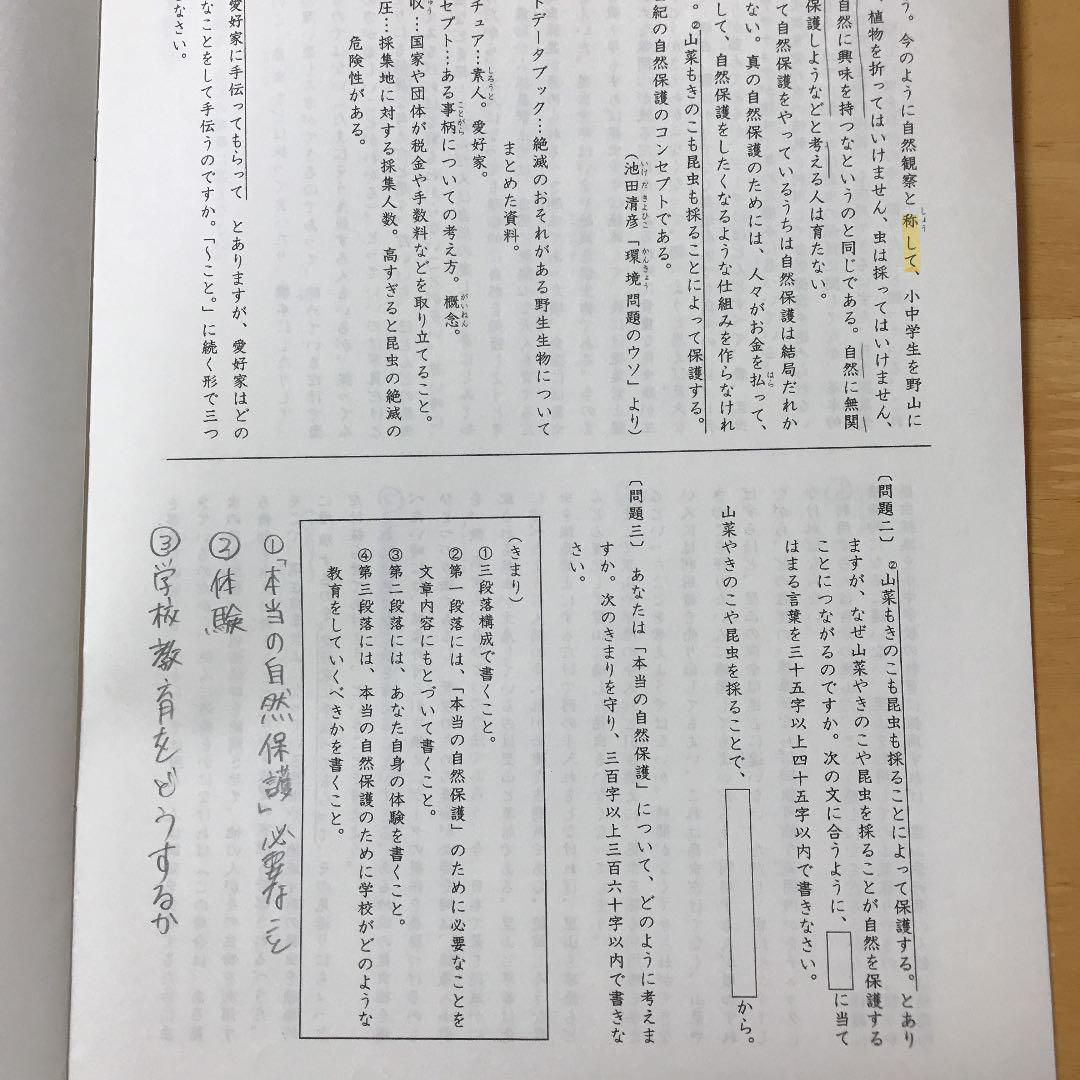 う。今のように自然観察と称して、小中学生を野山に
植物を折ってはいけません、虫は採ってはいけません、
自然に興味を持つなというのと同じである。自然に無関
保護しようなどと考える人は育たない。
て自然保護をやっているうちは自然保護は結局だれか
ない。真の自然保護のためには、人々がお金を払って、
して、自然保護をしたくなるような仕組みを作らなけれ
。②山菜もきのこも昆虫も採ることによって保護する。
紀の自然保護のコンセプトである。
(池田清彦「環境問題のウソ」より)
トデータブック…絶滅のおそれがある野生生物について
まとめた資料。
チュア…素人。愛好家。
セプト…ある事柄についての考え方。概念。
収…国家や団体が税金や手数料などを取り立てること。
圧…採集地に対する採集人数。高すぎると昆虫の絶滅の
危険性がある。
愛好家に手伝ってもらって とありますが、愛好家はどの
なことをして手伝うのですか。「～こと。」に続く形で三つ
なさい。
〔問題二〕 ②山菜もきのこも昆虫も採ることによって保護する。とあり
ますが、なぜ山菜やきのこや昆虫を採ることが自然を保護する
ことにつながるのですか。次の文に合うように、 に当て
はまる言葉を三十五字以上四十五字以内で書きなさい。
山菜やきのこや昆虫を採ることで、 から。
〔問題三〕 あなたは「本当の自然保護」について、どのように考えま
すか。次のきまりを守り、三百字以上三百六十字以内で書きな
さい。
(きまり)
①三段落構成で書くこと。
②第一段落には、「本当の自然保護」のために必要なことを
文章内容にもとづいて書くこと。
③第二段落には、あなた自身の体験を書くこと。
④第三段落には、本当の自然保護のために学校がどのような
教育をしていくべきかを書くこと。
①「本当の自然保護」必要なこと
②体験
③学校教育をどうするか